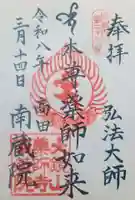 奉拝
弘法大師
本尊薬師如来
令和八年
三月十四日
高田
南蔵院